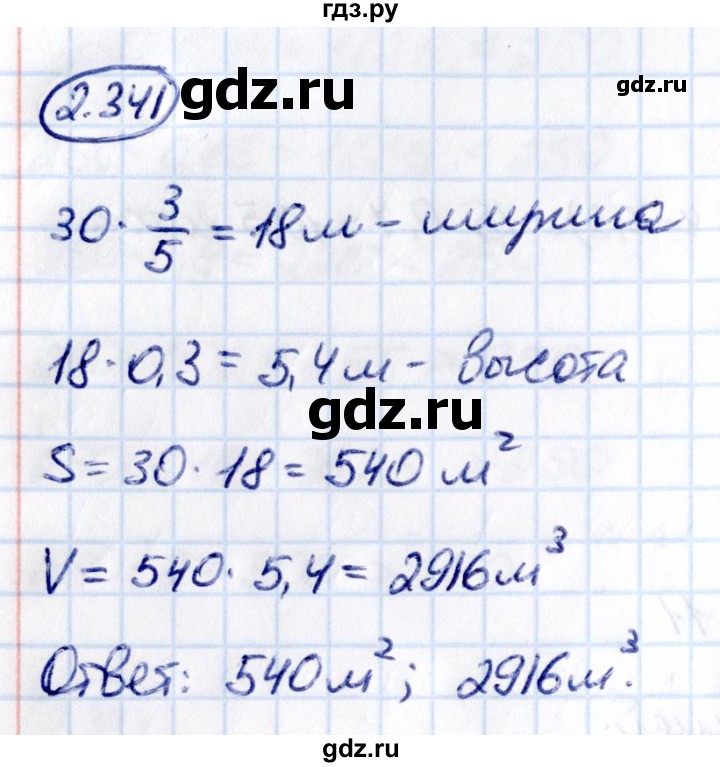 гдз.ру
2.341 gdz.ru gdz.ru
30 · 3/5 = 18 м - ширина
18 · 0,3 = 5,4 м - высота
gdz.ru
S = 30 · 18 = 540 м²
V = 540 · 5,4 = 2916 м³
Ответ: 540 м²; 2916 м³.
gdz.ru